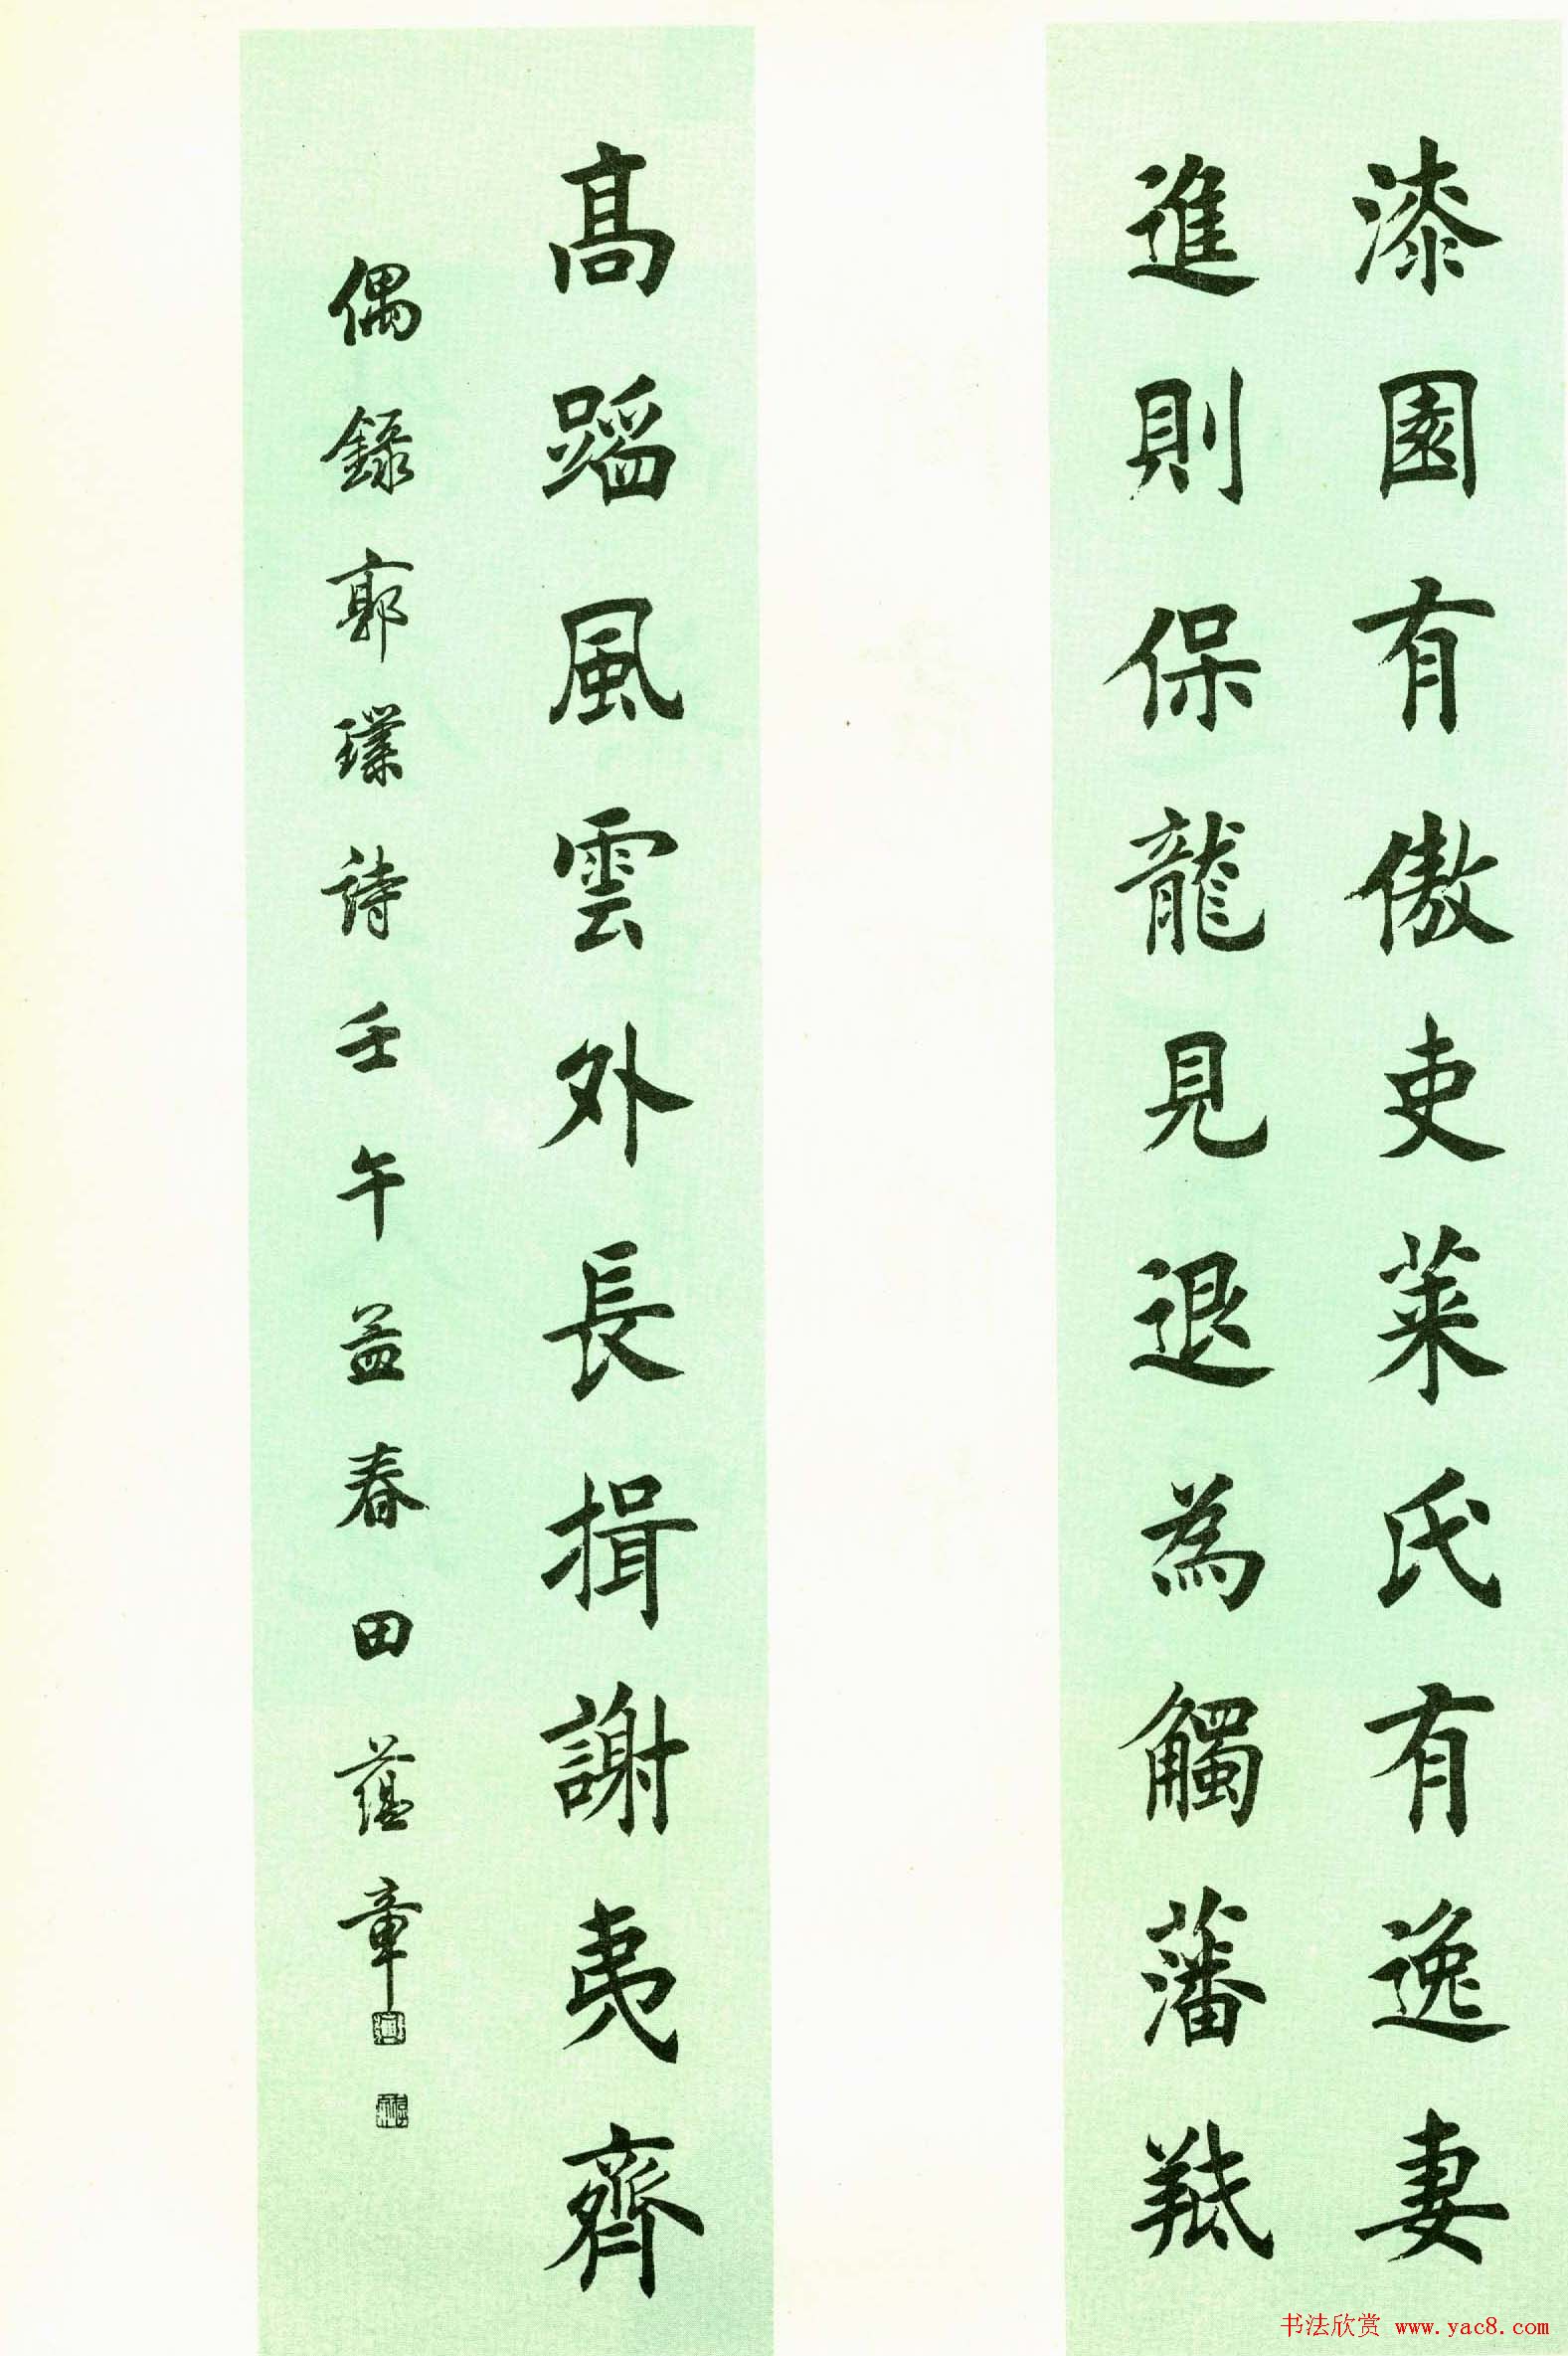 漆園有傲吏萊氏有逸妻
進則保龍見退為觸藩羝
高蹈風雲外長揖謝夷齊
偶錄郭璞詩壬午孟春田蘊章
书法欣赏 www.yac8.com